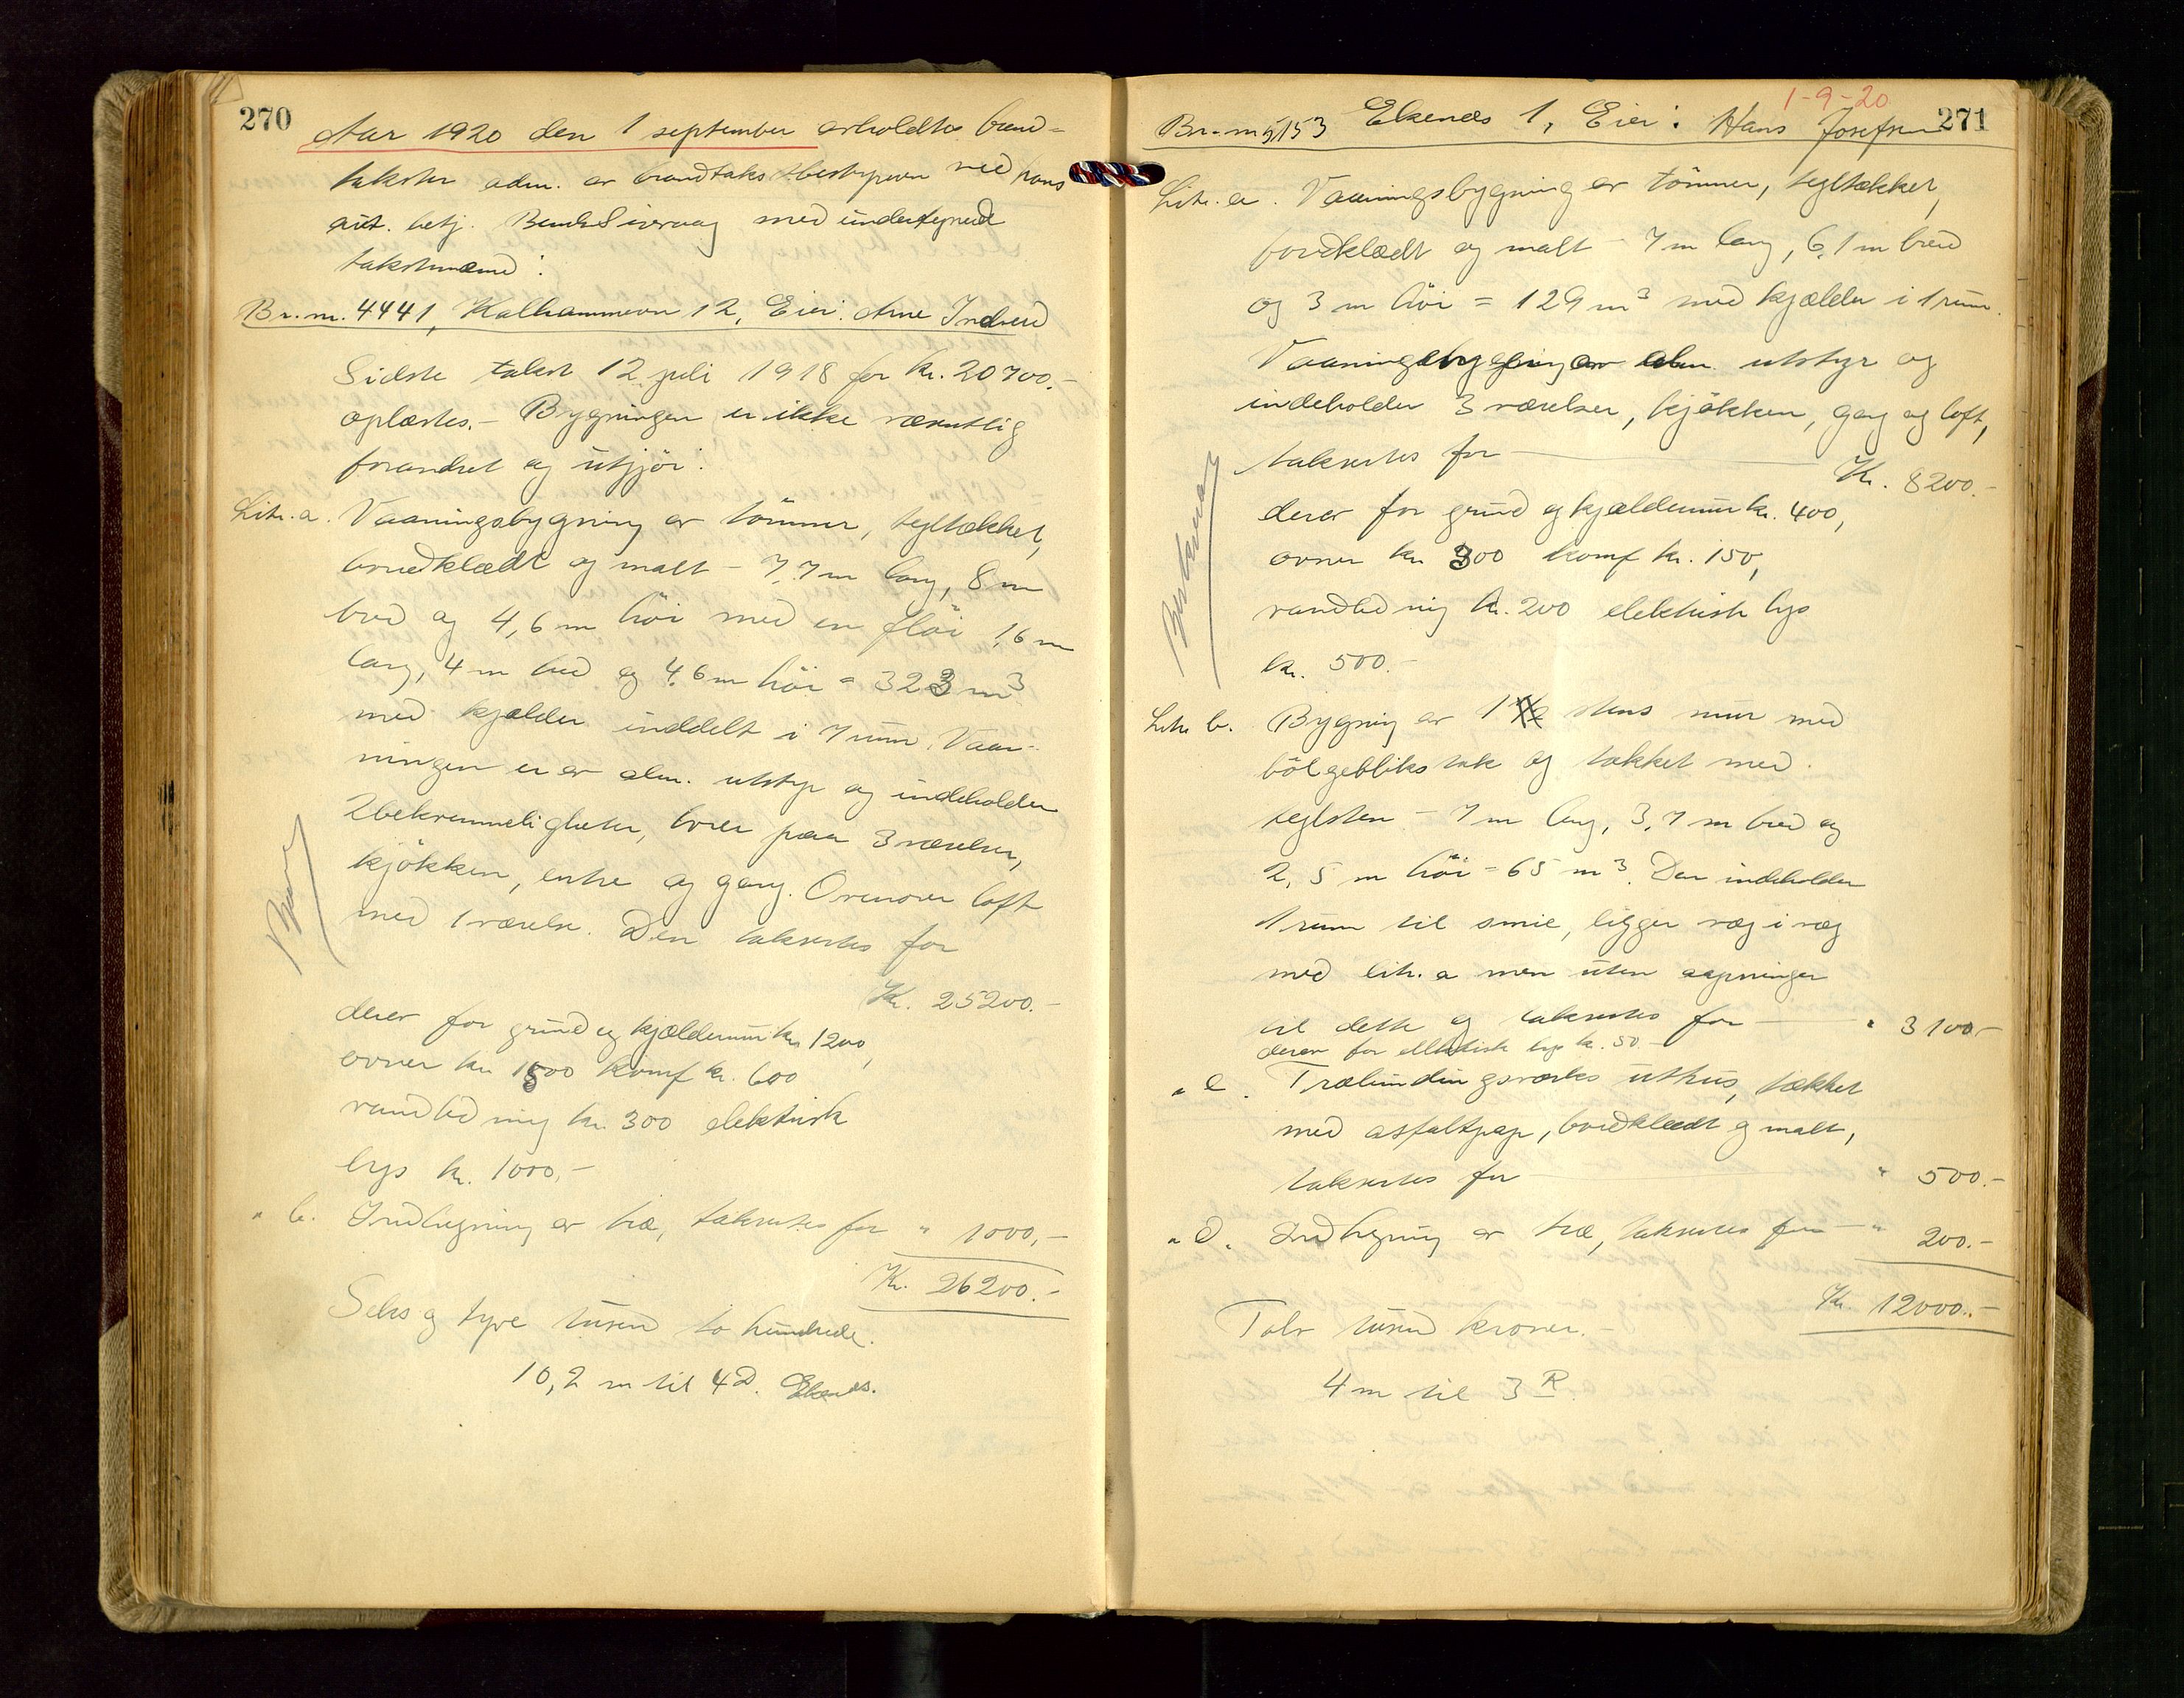 270
Aar 1920 den 1 september avholdtes brand-
takster adm. av brandtakstbestyreren ved hans
aut. betj. med undertegnede
takstmænd:
Br.nr. 4441, Kalhammeren 12, Eier: Arne
Sidste takst 12. juli 1918 for kr. 20700.-
oplæstes. - Bygningen er ikke væsentlig
forandret og utgjør:
Litr. a. Vaaningsbygning av tömmer, tegltækket,
bordklædt og malt - 7,7 m lang, 8 m
bred og 4,6 m höi med en flöi 1,6 m
lang, 4 m bred og 4,6 m höi = 323 m3
med kjælder inddelt i 7 rum. Vaan-
ningen er av alm. utstyr og indeholder
2 bekvemmeligheter, hver paa 3 værelser,
kjökken, entre og gang. Ovenover loft
med 1 værelse. Den takseres for
Kr. 25200.-
derav for grund og kjælderrum kr. 1200,
ovner kr. 1800 komf kr. 600
vandledning kr. 300 elektrisk
lys kr. 1000,-
" b. Indhegning av træ, takseres for " 1000,-
Kr. 26200.-
Seks og tyve tusen to hundrede.
10,2 m til 4D. Ekenes.
1-9-20
271
Br.nr. 5153 Ekenæs 1, Eier: Hans Josefsen
Litr. a. Vaaningsbygning av tömmer, tegltækket,
bordklædt og malt - 7 m lang, 6,1 m bred
og 3 m höi = 129 m3 med kjælder i 1 rum.
Vaaningsbygning av alm. utstyr og
indeholder 3 værelser, kjökken, gang og loft,
takseres for Kr. 8200.-
derav for grund og kjælderrum kr. 400,
ovner kr. 300 komf kr. 150,
vandledning kr. 200 elektrisk lys
kr. 500.-
Litr. b. Bygning av 1 stens mur med
bölgebliks tak og tækket med
teglsten - 7 m lang, 3,7 m bred og
2,5 m höi = 65 m3. Den indeholder
1 rum til smie, ligger væg i væg
med litr. a men uten aapninger
til dette og takseres for " 3100.-
derav for elektrisk lys kr. 50.-
" c. Træbindingsverks uthus, tækket
med asfaltpap, bordklædt og malt,
takseres for " 500.-
" d. Indhegning av træ, takseres for " 200.-
Kr. 12000.-
Tolv tusen kroner.-
4 m til 3 R.